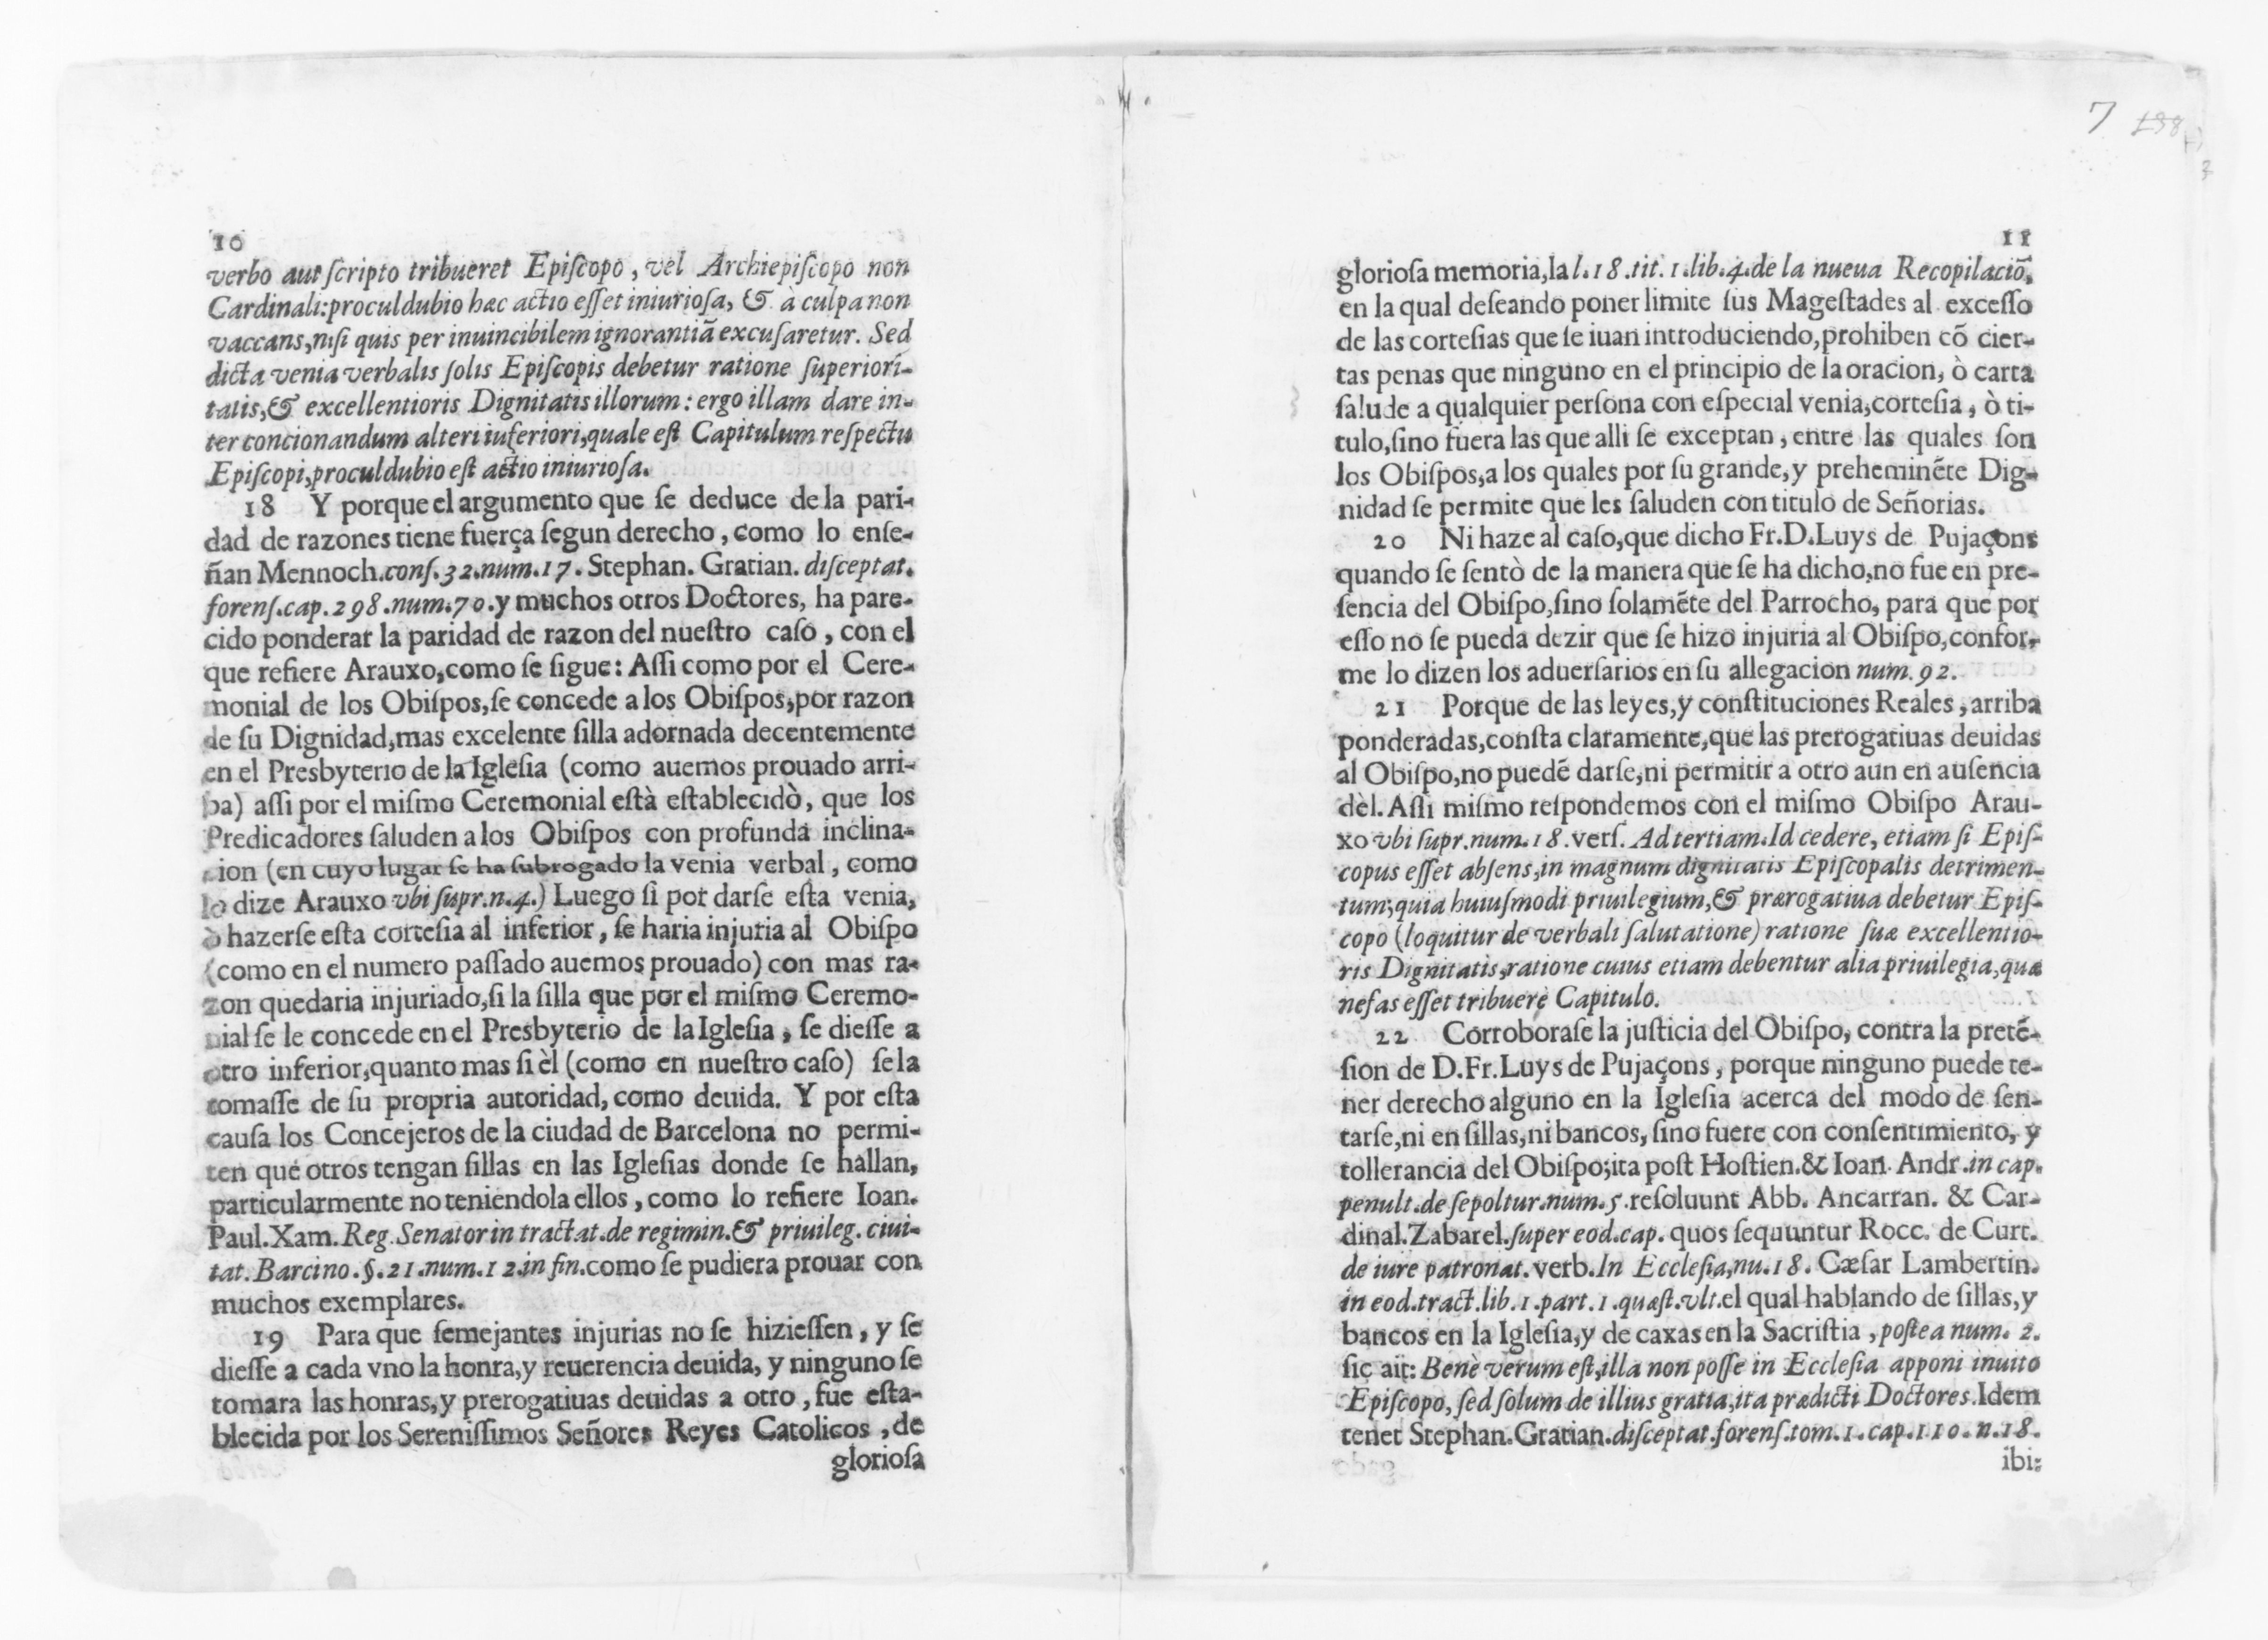 10
verbo aut ſcripto tribueret Epiſcopo, vel Archiepiſcopo non
Cardinali: procul dubio hæc actio eſſet iniurioſa, & à culpa non
vaccans, niſi quis per inuincibilem ignorantiã excuſaretur. Sed
dicta venia verbalis ſolis Epiſcopis debetur ratione ſuperiori-
tatis, & excellentioris Dignitatis illorum: ergo illam dare in-
ter concionandum alteri inferiori, quale eſt Capitulum reſpectu
Epiſcopi, procul dubio eſt actio iniurioſa.
18 Y porque el argumento que ſe deduce de la pari-
dad de razones tiene fuerça ſegun derecho, como lo enſe-
ñan Mennoch. conſ. 32. num. 17. Stephan. Gratian. diſceptat.
forenſ. cap. 298. num. 70. y muchos otros Doctores, ha pare-
cido ponderar la paridad de razon del nueſtro caſo, con el
que refiere Arauxo, como ſe ſigue: Aſſi como por el Cere-
monial de los Obiſpos, ſe concede a los Obiſpos, por razon
de ſu Dignidad, mas excelente ſilla adornada decentemente
en el Presbyterio de la Igleſia (como auemos prouado arri-
ba) aſſi por el miſmo Ceremonial eſtà eſtablecidò, que los
Predicadores ſaluden a los Obiſpos con profunda inclina-
cion (en cuyo lugar ſe ha ſubrogado la venia verbal, como
lo dize Arauxo vbi ſupr. n. 4.) Luego ſi por darſe eſta venia,
ò hazerſe eſta corteſia al inferior, ſe haria injuria al Obiſpo
(como en el numero paſſado auemos prouado) con mas ra-
zon quedaria injuriado, ſi la ſilla que por el miſmo Ceremo-
nial ſe le concede en el Presbyterio de la Igleſia, ſe dieſſe a
otro inferior, quanto mas ſi èl (como en nueſtro caſo) ſe la
tomaſſe de ſu propria autoridad, como deuida. Y por eſta
cauſa los Concejeros de la ciudad de Barcelona no permi-
ten que otros tengan ſillas en las Igleſias donde ſe hallan,
particularmente no teniendola ellos, como lo refiere Ioan.
Paul. Xam. Reg. Senator in tractat. de regimin. & priuileg. ciui-
tat. Barcino. §. 21. num. 12. in fin. como ſe pudiera prouar con
muchos exemplares.
19 Para que ſemejantes injurias no ſe hizieſſen, y ſe
dieſſe a cada vno la honra, y reuerencia deuida, y ninguno ſe
tomara las honras, y prerogatiuas deuidas a otro, fue eſta-
blecida por los Sereniſſimos Señores Reyes Catolicos, de
glorioſa
7 188
3
11
glorioſa memoria, la l. 18. tit. 1. lib. 4. de la nueua Recopilaciõ,
en la qual deſeando poner limite ſus Mageſtades al exceſſo
de las corteſias que ſe iuan introduciendo, prohiben cõ cier-
tas penas que ninguno en el principio de la oracion, ò carta
ſalude a qualquier perſona con eſpecial venia, corteſia, ò ti-
tulo, ſino fuera las que alli ſe exceptan, entre las quales ſon
los Obiſpos, a los quales por ſu grande, y preheminẽte Dig-
nidad ſe permite que les ſaluden con titulo de Señorias.
20 Ni haze al caſo, que dicho Fr. D. Luys de Pujaçons
quando ſe ſentò de la manera que ſe ha dicho, no fue en pre-
ſencia del Obiſpo, ſino ſolamẽte del Parrocho, para que por
eſſo no ſe pueda dezir que ſe hizo injuria al Obiſpo, confor-
me lo dizen los aduerſarios en ſu allegacion num. 92.
21 Porque de las leyes, y conſtituciones Reales, arriba
ponderadas, conſta claramente, que las prerogatiuas deuidas
al Obiſpo, no puedẽ darſe, ni permitir a otro aun en auſencia
dèl. Aſſi miſmo reſpondemos con el miſmo Obiſpo Arau-
xo vbi ſupr. num. 18. verſ. Ad tertiam. Id cedere, etiam ſi Epiſ-
copus eſſet abſens, in magnum dignitatis Epiſcopalis detrimen-
tum; quia huiuſmodi priuilegium, & prærogatiua debetur Epiſ-
copo (loquitur de verbali ſalutatione) ratione ſuæ excellentio-
ris Dignitatis, ratione cuius etiam debentur alia priuilegia, quæ
nefas eſſet tribuere Capitulo.
22 Corroboraſe la juſticia del Obiſpo, contra la pretẽ-
ſion de D. Fr. Luys de Pujaçons, porque ninguno puede te-
ner derecho alguno en la Igleſia acerca del modo de ſen-
tarſe, ni en ſillas, ni bancos, ſino fuere con conſentimiento, y
tollerancia del Obiſpo; ita poſt Hoſtien. & Ioan. Andr. in cap.
penult. de ſepoltur. num. 5. reſoluunt Abb. Ancarran. & Car-
dinal. Zabarel. ſuper eod. cap. quos ſequuntur Rocc. de Curt.
de iure patronat. verb. In Eccleſia, nu. 18. Cæſar Lambertin.
in eod. tract. lib. 1. part. 1. quæſt. vlt. el qual hablando de ſillas, y
bancos en la Igleſia, y de caxas en la Sacriſtia, poſtea num. 2.
ſic ait: Benè verum eſt, illa non poſſe in Eccleſia apponi inuito
Epiſcopo, ſed ſolum de illius gratia, ita prædicti Doctores. Idem
tenet Stephan. Gratian. diſceptat. forenſ. tom. 1. cap. 110. n. 18.
ibi: